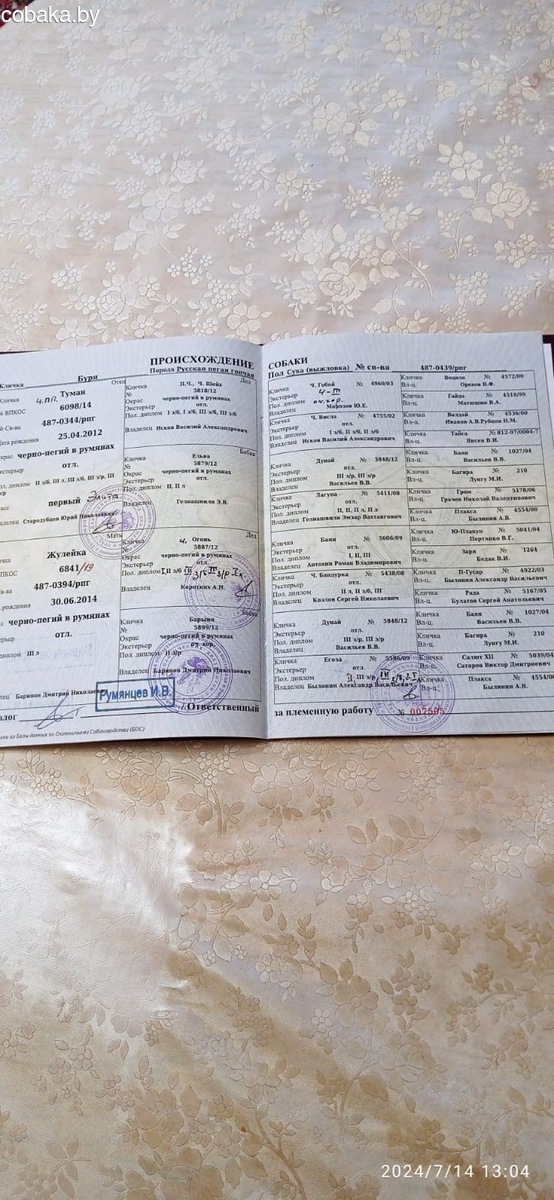 cobaka.by
ПРОИСХОЖДЕНИЕ
СОБАКИ
Кличка Буря
Порода Русская пегая гончая
Пол Сука (выжловка) № св-ва 487-0439/рпг
Отец
Ч.П.П. Туман
ВПКОС 6098/14
№ Св-ва 487-0344/рпг
Дата рождения 25.04.2012
черно-пегий в румянах
отл.
первый Элита
Стародубцев Юрий Николаевич
Мать
Жулейка
ВПКОС 6841/19
487-0394/рпг
рождения 30.06.2014
черно-пегий в румянах
отл.
дипломы III л
Баринан Дмитрий Николаевич
Дед
Кличка П.Ч., Ч. Шейх
№ 5818/12
Окрас черно-пегий в румянах
Экстерьер отл.
Пол. диплом I з/б, I з/б, III з/б, II з/б
Владелец Исхов Василий Александрович
Бабка
Кличка Ельва
№ 5879/12
Окрас черно-пегий в румянах
Экстерьер отл.
Пол. диплом II, II л
Владелец Гелиашвили Э.В.
Дед
Кличка Ч. Огонь
№ 5887/12
Окрас черно-пегий в румянах
Экстерьер отл.
Владелец Коротких А.Н.
Кличка Барыня
№ 5899/12
Окрас черно-пегий в румянах
Экстерьер оч.хор.
Пол. диплом II з/р
Владелец Баринов Дмитрий Николаевич
Кличка Ч. Гобой № 4960/03
Экстерьер Ч-III
Пол. диплом оч.хор.
Владелец Морозов Ю.Е.
Кличка Ч. Висла № 4755/02
Экстерьер отл.
Пол. диплом I з/б, II з/б, II з/б
Владелец Исхов Василий Александрович
Кличка Дунай № 5848/12
Экстерьер отл.
Пол. диплом III з/р, III з/р
Владелец Васильев В.В.
Кличка Лагуна № 5411/08
Экстерьер отл.
Пол. диплом II, II, II л, II л
Владелец Гелиашвили Энзар Вахтангович
Кличка Баян № 5606/09
Экстерьер отл.
Пол. диплом I, II, III
Владелец Антохин Роман Владимирович
Кличка Ч. Бандурка № 5438/08
Экстерьер отл.
Пол. диплом II л, II з/б, III
Владелец Козлов Сергей Николаевич
Кличка Дунай № 5848/12
Экстерьер отл.
Пол. диплом III з/р, III з/р
Владелец Васильев В.В.
Кличка Егоза № 5586/09
Экстерьер отл.
Владелец Былинин Александр Васильевич
Кличка Водило № 4572/00
Вл-ц. Орехов В.Ф.
Кличка Гайда № 4518/99
Вл-ц. Матюшин В.А.
Кличка Валдай № 4536/00
Вл-ц. Иванов А.В.Рубцов Н.М.
Кличка Тайга № 812-97/0004-7
Вл-ц. Янсен В.И.
Кличка Баян № 1027/04
Вл-ц. Васильев В.В.
Кличка Багира № 210
Вл-ц. Лунгу М.И.
Кличка Гром № 5178/06
Вл-ц. Грачев Николай Валентинович
Кличка Плакса № 4554/00
Вл-ц. Былинин А.В.
Кличка Ю-Плакун № 5041/04
Вл-ц. Портянко В.Г.
Кличка Заря № 1264
Вл-ц. Бедак В.И.
Кличка П-Гусар № 4922/03
Вл-ц. Былинин Александр Васильевич
Кличка Рада № 5167/05
Вл-ц. Булатов Сергей Анатольевич
Кличка Баян № 1027/04
Вл-ц. Васильев В.В.
Кличка Багира № 210
Вл-ц. Лунгу М.И.
Кличка Салют XII № 5039/04
Вл-ц. Сатаров Виктор Дмитриевич
Кличка Плакса № 4554/00
Вл-ц. Былинин А.В.
Румянцев И.В.
/Ответственный
за племенную работу № 007505
из Базы данных по Охотничьему Собаководству (БОС)
2024/7/14 13:04